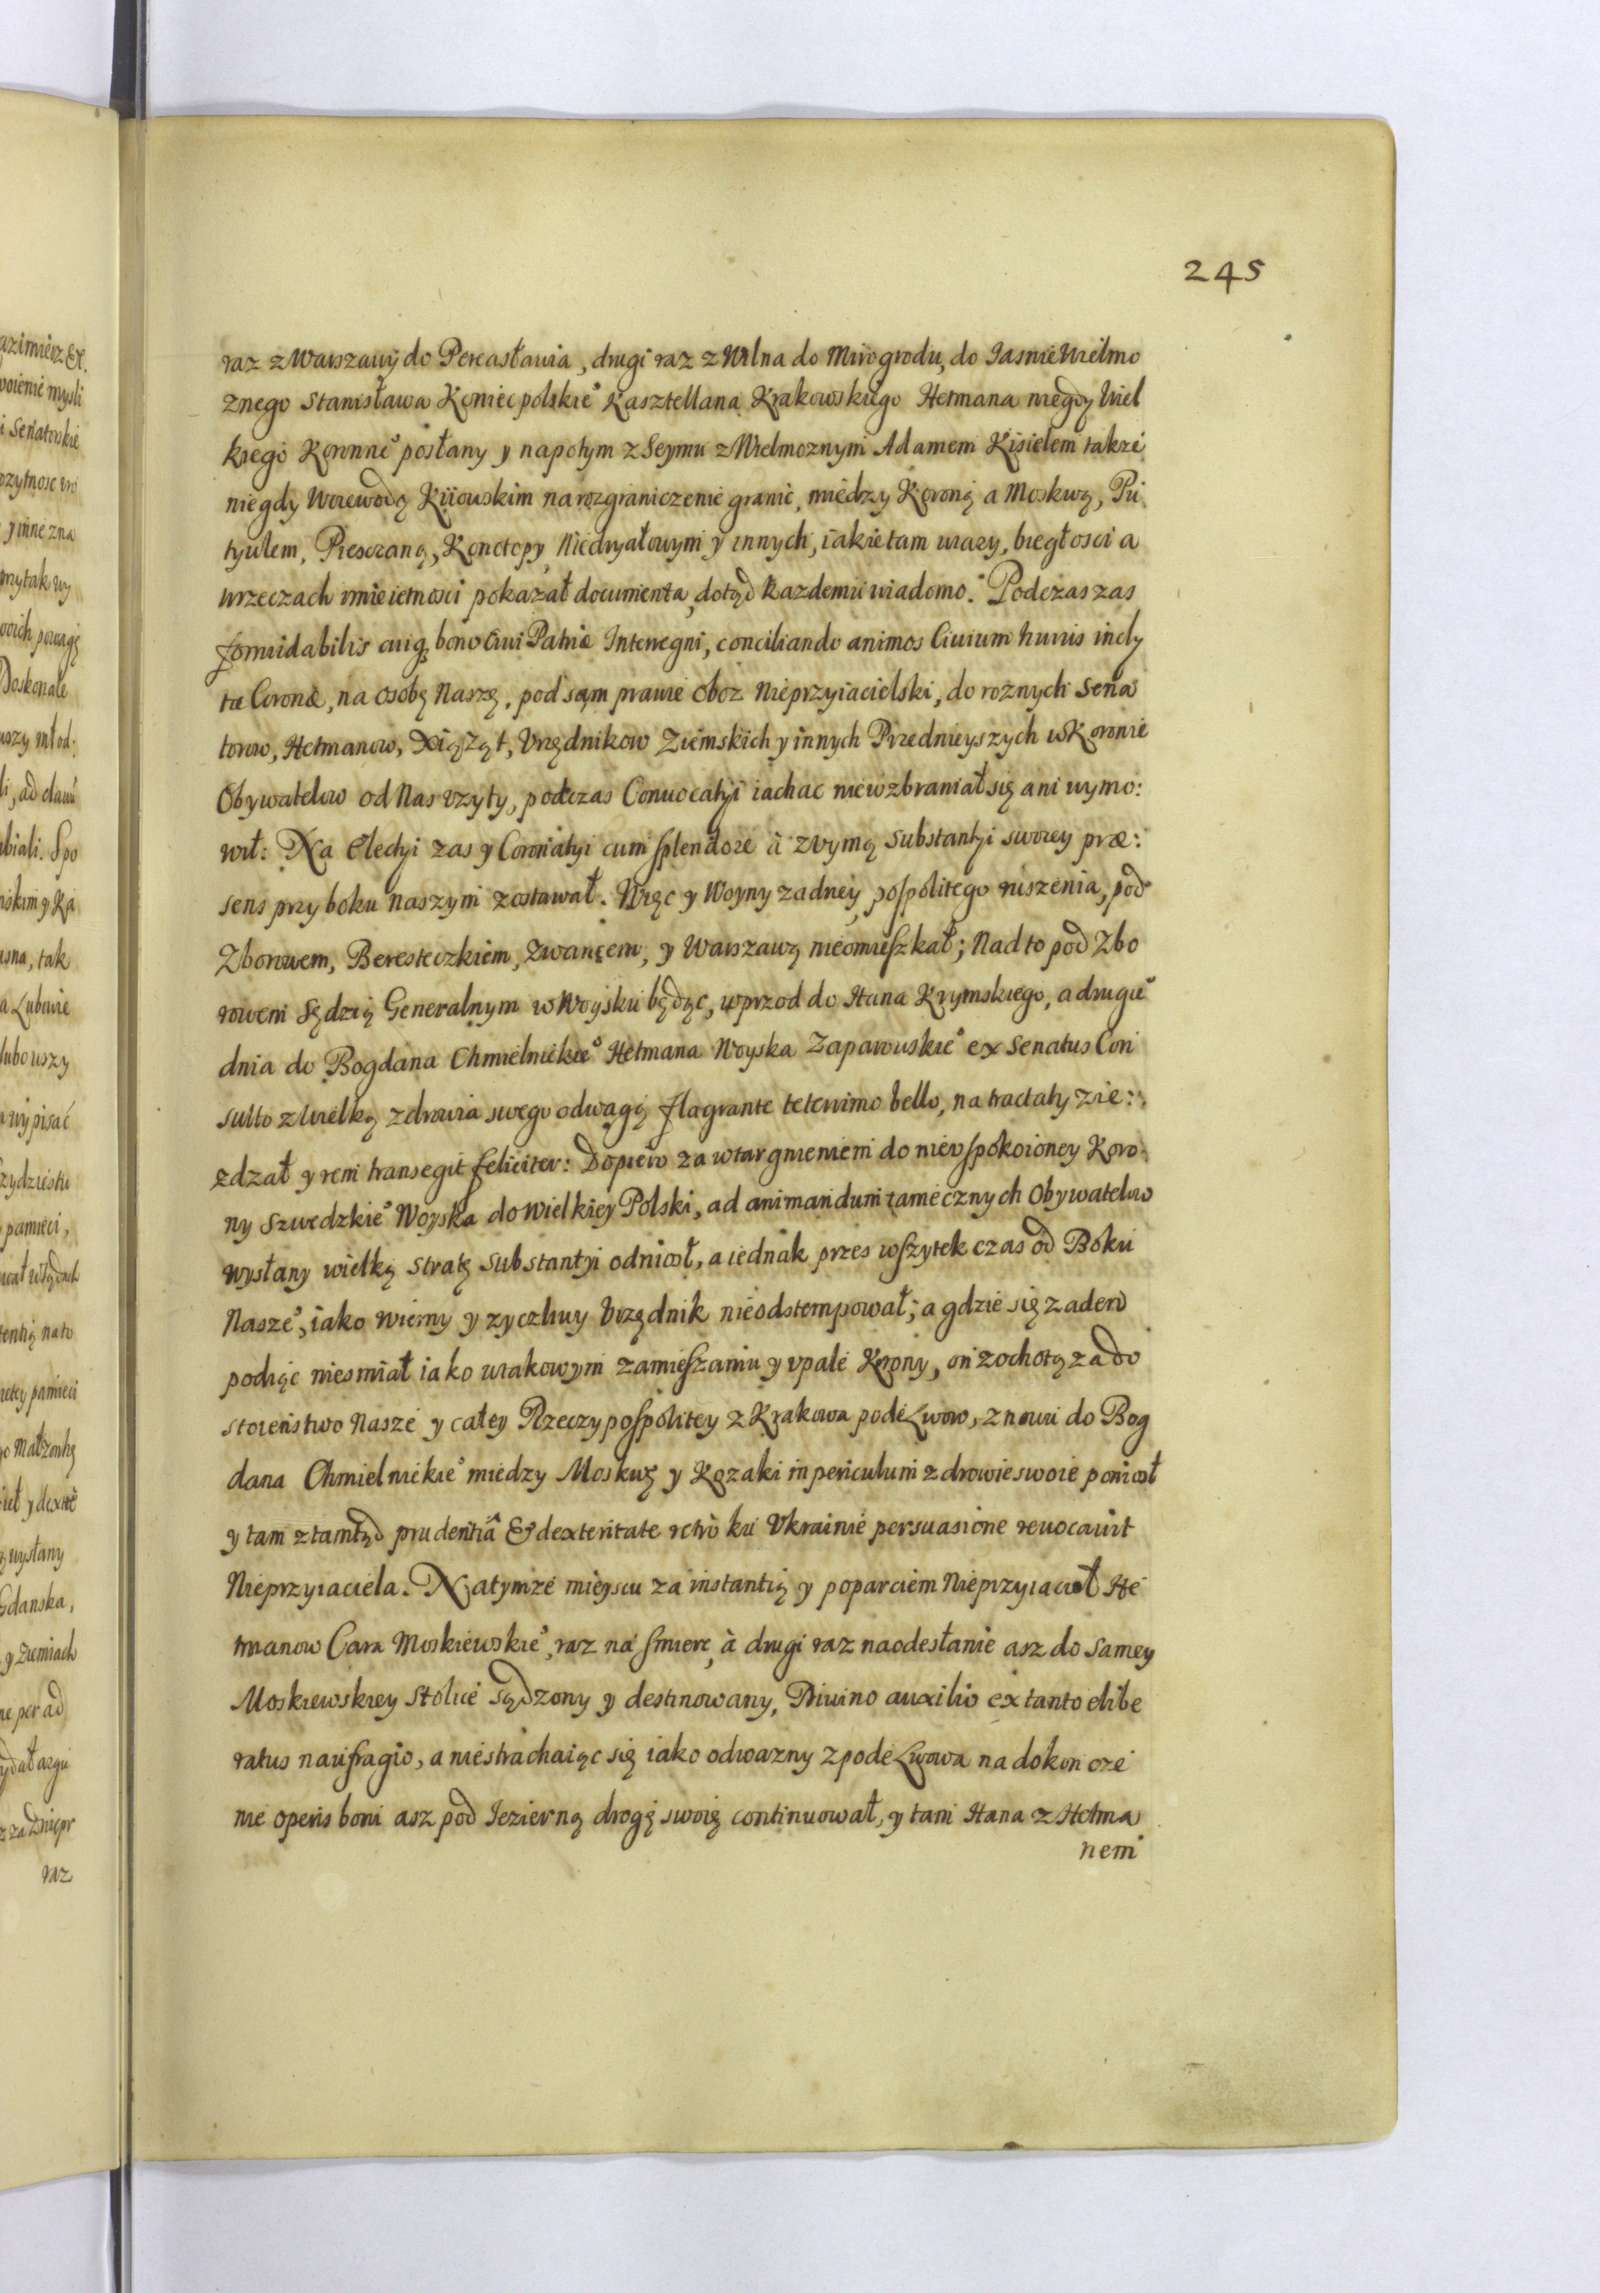 245
raz z Warszawy do Pereasławia, drugi raz z Wilna do Mirogrodu, do Iasnie Wielmo
znego Stanisława Koniecpolskie° Kasztellana Krakowskiego Hetmana niegdy Wiel
kiego Koronne° posłany y napotym z Seymu z Wielmoznym Adamem Kisielem takze
niegdy Woiewodą Kiiowskim na rozgraniczenie granic, miedzy Koroną a Moskwą, Pu
tywlem, Piesczaną, Konotopy, Niedryałowym y innych, iakie tam urazy, biegłosci a
w rzeczach umieietnosci pokazał documenta, dotąd kazdemu wiadomo. Podczas zas
formidabilis cuiq bono Ciui Patriæ Interregni, conciliando animos Ciuium huius incly
tæ Coronæ, na osobę Naszę, pod sam prawie oboz Nieprzyiacielski, do roznych Sena
torow, Hetmanow, Xiążąt, Vrzędnikow Ziemskich y innych Przednieyszych w Koronie
Obywatelow od Nas vzyty, podczas Conuocatyi iachac niewzbraniał się ani wymo:
wił: Na Electyi zas y Coronatyi cum splendore à z vymą Substantyi swoiey præ:
sens przy boku naszym zostawał. Więc y Woyny zadney, pospolitego ruszenia, pod
Zborowem, Beresteczkiem, Zwancem, y Warszawą nieomieszkał; Nad to pod Zbo
rowem Sędzią Generalnym w Woysku będąc, wprzod do Hana Krymskiego, a drugie°
dnia do Bogdana Chmielnickie° Hetmana Woyska Zaparouskie° ex Senatus Con
sulto z wielką zdrowia swego odwagą flagrante teterrimo bello, na tractaty zie:
zdzał y rem transegit feliciter: Dopiero za wtargnieniem do nieuspokoioney Koro
ny Szwedzkie° Woyska do Wielkiey Polski, ad animandum tamecznych Obywatelow
wysłany wielką stratę substantyi odniosł, a iednak przes wszytek czas od Boku
Nasze°, iako wierny y zyczliwy Vrzędnik nieodstempował; a gdzie się zaden
podiąc niesmiał iako w takowym zamieszaniu y vpale Korony, on z ochotą za do
stoienstwo Nasze y całey Rzeczypospolitey z Krakowa pode Lwow, znowu do Bog
dana Chmielnickie° miedzy Moskwę y Kozaki in periculum zdrowie swoie poniosł
y tam ztamtąd prudentiâ & dexteritate retro ku Vkrainie persuasione reuocauit
Nieprzyiaciela. Na tymze mieyscu za instantią y poparciem Nieprzyiacioł He
tmanow Cara Moskiewskie°, raz na smierc, à drugi raz na odesłanie asz do samey
Moskiewskiey Stolice sądzony y destinowany, Diuino auxilio ex tanto elibe
ratus naufragio, a niestrachaiąc się iako odwazny z pode Lwowa na dokoncze
nie operis boni asz pod Iezierną drogę swoię continuował, y tam Hana z Hetma
nem